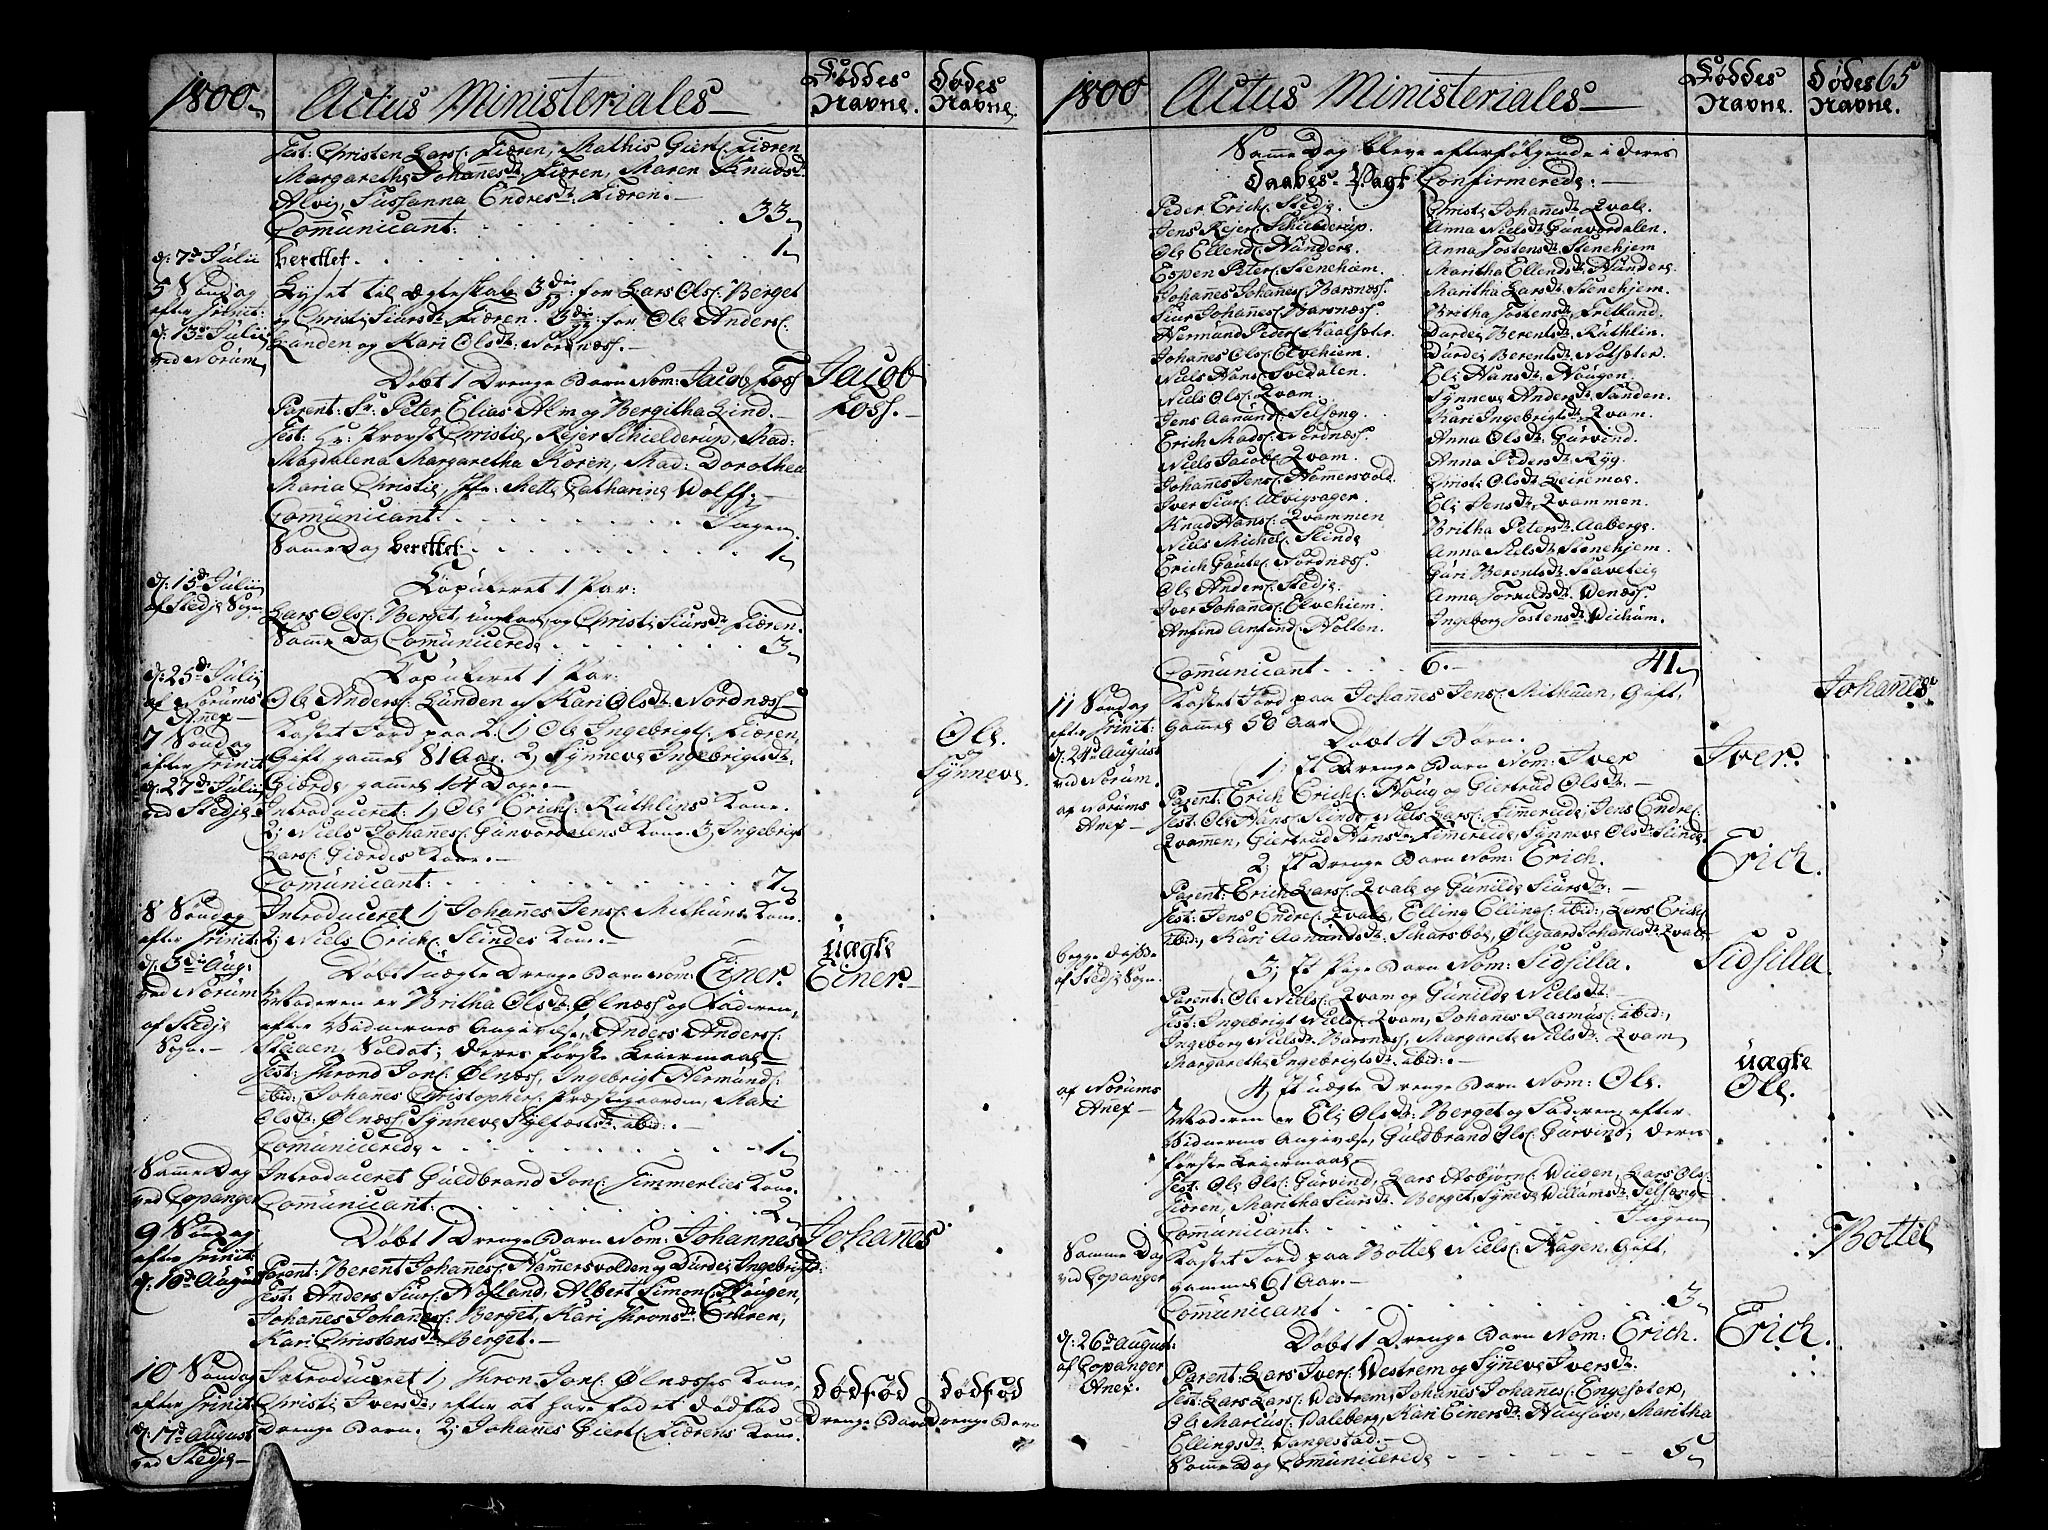 1800
Actus Ministeriales
Føddes Navne.
Dødes Navne.
Test: Christen Lars: Fiæren, Mathis Giert: Fiæren
Margarethe Johanesdr: Fiæren, Maren Knudsdr:
Alvig, Sussanna Endresdr: Fiæren.
Comunicant: 33
d: 7de Julii berettet. 1
5 Søndag efter Trinit: d: 13de Julii ved Norum
Lyset til Ægteskab 3die for Lars Ols: Berget
og Christi Siursdr: Fiæren. 3die for Ole Anders:
Landen og Kari Olsdr: Nordnæss.
Døbt 1 Drenge Barn Nom: Jacob Foss
Jacob Foss.
Parent: Sr: Peter Elias Alm og Bergitha Lind.
Test: Hr: Provst Christie, Rejer Schielderup, Mad:
Magdalena Margaretha Koren, Mad: Dorothea
Maria Christie, Jfr: Mette Catharine Wolff
Comunicant: Ingen
Same Dag berettet: 1
d: 15de Julii af Stedje Sogn.
Copuleret 1 Par:
Lars Ols: Berget, og Christi Siursdr: Fiæren.
Samme Dag Comunicerede 3
d: 25de Julii af Norums Anex
Copuleret 1 Par:
Ole Anders: Landen og Kari Olsdr: Nordnæss
7 Søndag efter Trinit: d: 27de Julii ved Stedje
Kastet Jord paa 2. 1, Ole Ingebrigt: Fiæren,
Gift gammel 81 Aar. 2, Synneve Ingebrigtsdr:
Giærde gammel 14 Dage.
Ole og Synneve
Introduceret: 1, Ole Erich: Ruthlins Kone.
2, Niels Johanes: Gunvordalens Kone. 3, Ingebrigt
Lars: Giærdes Kone.
Comunicant: 7
8 Søndag efter Trinit: d: 3die Aug: ved Norum af Stedje Sogn.
Introduceret 1, Johanes Jens: Mithuns Kone.
2, Niels Erich: Slindes Kone.
Døbt 1 uægte Drenge Barn Nom: Einer.
Uægte Einer.
Moderen er Britha Olsdr: Ølnæss og Faderen,
efter Vidnernes Angivelse, Anders Anders:
Stauen, Soldat; deres første Leiermaal
Test: Thrond Jons: Ølnæss, Ingebrigt Hermund:
ibid:, Johanes Christopher: Præstegaarden, Mari
Olsdr: Ølnæss, Synneve Sylfæstsdr: ibid:
Comunicerede 1
Samme Dag ved Copanger
Introduceret Guldbrand Jons: Timmerlies Kone.
Comunicant: 2
9 Søndag efter Trinit: d: 10de August
Døbt 1 Drenge Barn Nom: Johannes
Johanes
Parent: Berent Johanes: Hamersvolden og Durdei Ingebrigtsd:
Test: Anders Siur: Hofland, Albert Simon: Hougen,
Johanes Johanes: Berget, Kari Thronsdr: Eideren,
Kari Christensdr: Berget.
10 Søndag efter Trinit: d: 17de August ved Stedje
Introduceret 1, Thron Jons: Ølnæsses Kone,
Christi Iversdr, efter at have fød et dødfød
Drenge Barn. 2, Johanes Giert: Fiærens Kone.
dødfød Drenge Barn
dødfød Drenge Barn
1800
Actus Ministeriales
Føddes Navne.
Dødes Navne.
65
Samme Dag bleve efterfølgende i deres
Daabes-Pagt Confirmerede:
Peder Erich: Stedje.
Jens Rejer: Schielderup.
Ole Ellend: Nundere.
Espen Peter: Stenehiem.
Johanes Johanes: Barsnæss.
Siur Johanes: Barsnæss.
Hermund Peder: Kaalsæter.
Johanes Ols: Elvehiem.
Niels Hans: Svedalen.
Niels Ols: Qvam.
Jens Aamund: Selseng.
Erich Mads: Nordnæss.
Niels Jacob: Qvam.
Johanes Jens: Hamersvold.
Iver Siur: Alvigsager.
Knud Hans: Qvammen
Niels Michel: Slinde
Erich Gaute: Nordnæss.
Ole Anders: Stedje.
Iver Johanes: Elvehiem.
Anfind Anfind: Holten.
Christi Johanesdr: Qvale.
Anna Nielsdr: Gunvordalen.
Anna Tostensdr: Stenehjem
Maritha Ellendsdr: Nundere.
Maritha Larsdr: Stenehjem.
Britha Tostensdr: Fretland.
Durdei Berentsdr: Ruthlin.
Durdei Berentsdr: Nutsæter.
Eli Hansdr: Hougen.
Synneve Andersdr: Landen.
Kari Ingebrigtsdr: Qvam.
Anna Olsdr: Gurvind.
Anna Pedersdr: Ryg.
Christi Olsdr: Leiremoe.
Eli Jensdr: Qvammen.
Britha Petersdr: Aaberge.
Anna Nielsdr: Stenehjem.
Guri Berentsdr: Staveteig
Anna Torvalsdr: Wenæss.
Ingeborg Tostensdr: Vichum.
Comunicant 6. 41
11 Søndag efter Trinit: d: 24de August ved Norum. af Norums Anex
Kastet Jord paa Johanes Jens: Mithuun, Gift,
gammel 50 Aar
Johanes
Døbt 4 Børn.
1, Et Drenge Barn Nom: Iver
Iver.
Parent: Erich Erich: Houg og Giertrud Olsdr:
Test: Ole Hans: Slinde, Niels Lars: Eimereide, Jens Endre:
Qvammen, Giertrud Hansdr: Eimereide, Synneve Olsdr: Slinde
2, Et Drenge Barn Nom: Erich.
Erich.
Parent: Erich Lars: Qvale og Gunilde Siursdr:
Test: Jens Endre: Qvale, Elling Elling: ibid:, Lars Erich:
ibid:, Kari Aamundsdr: Scharsbøe, Ølegaard Johanesdr: Qvale
begge disse af Stedje Sogn.
3, Et Pige Barn Nom: Sidsilla.
Sidsilla.
Parent: Ole Niels: Qvam og Gunilde Nielsdr:
Test: Ingebrigt Niels: Qvam, Johanes Rasmus: ibid:,
Ingeborg Nielsdr: Barsnæss, Margarete Nielsdr: Qvam
Margaretha Ingebrigtsdr: ibid:
af Norums Anex
4, Et uægte Drenge Barn Nom: Ole.
Uægte Ole.
Moderen er Eli Olsdr: Berget og Faderen efter
Vidnernes Angivelse, Guldbrand Ols: Gurvind; deres
første Leiermaal
Test: Ole Ols: Gurvind, Lars Asbjørn: Viigen, Lars Ols:
Fiæren, Maritha Siursdr: Berget, Synneve Villumsdr: Selseng
Comunicant: Ingen
Samme Dag ved Copanger
Kastet Jord paa Bottel Niels: Hagen, Gift,
gammel 61 Aar.
Bottel
Comunicant 3
d: 26de August: af Copanger Anex
Døbt 1 Drenge Barn Nom: Erich.
Erich.
Parent: Lars Iver: Westrem og Synneve Iversdr:
Test: Lars Lars: Westrem, Johanes Johanes: Engesæter,
Ole Marcus: Daleberg, Kari Einersdr: Huusøie, Maritha
Ellingsdr: Vangestad.
Samme Dag Comunicerede 5